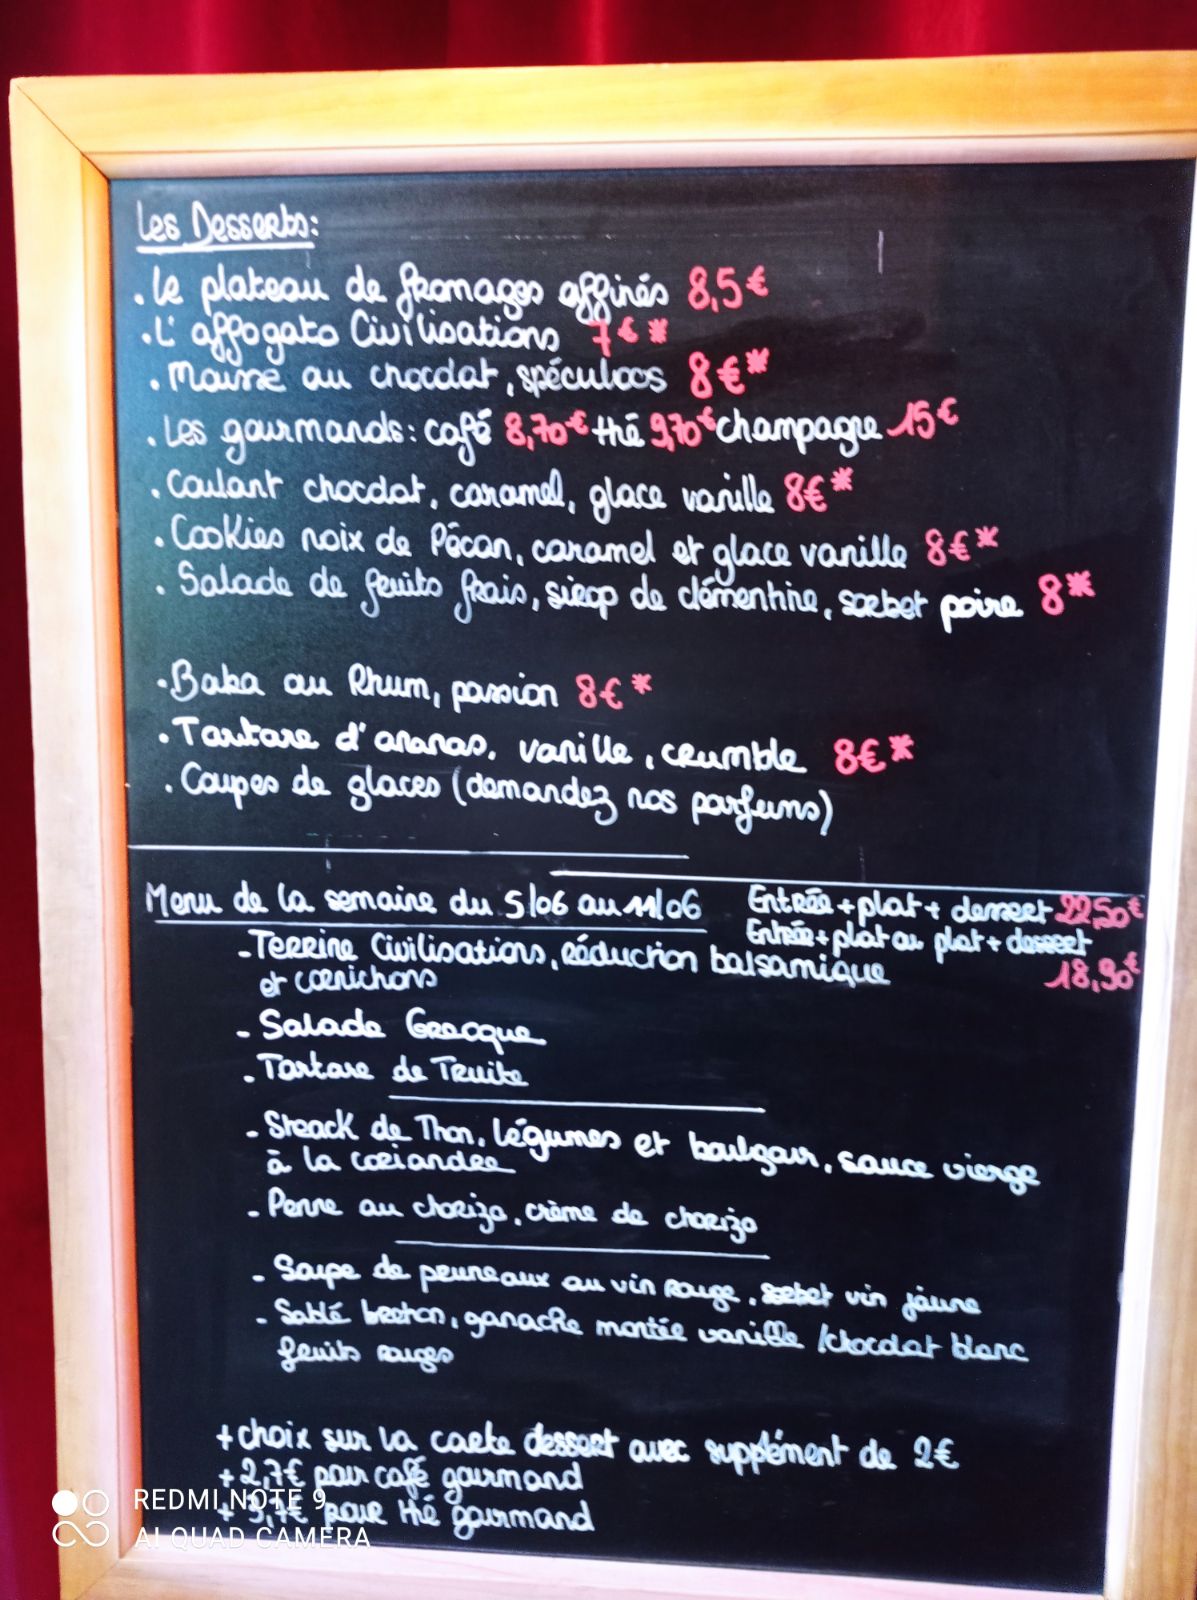 Les Desserts:
. Le plateau de fromages affinés 8,5€
. L'affogato Civilisations 7€*
. Mousse au chocolat, spéculoos 8€*
. Les gourmands: café 8,70€ thé 9,70€ champagne 15€
. Coulant chocolat, caramel, glace vanille 8€*
. Cookies noix de Pécan, caramel et glace vanille 8€*
. Salade de fruits frais, sirop de clémentine, sorbet poire 8*
. Baba au Rhum, passion 8€*
. Tartare d'ananas, vanille, crumble 8€*
. Coupes de glaces (demandez nos parfums)
Menu de la semaine du 5/06 au 11/06
Entrée + plat + dessert 22,50€
Entrée + plat ou plat + dessert
18,90€
- Terrine Civilisations, réduction balsamique
et cornichons
- Salade Grecque
- Tartare de Truite
- Steack de Thon, légumes et boulgour, sauce vierge
à la coriandre
- Penne au chorizo, crème de chorizo
- Soupe de pruneaux au vin rouge, sorbet vin jaune
- Sablé breton, ganache montée vanille / chocolat blanc
fruits rouges
+ choix sur la carte dessert avec supplément de 2€
+ 2,7€ pour café gourmand
+ 3,7€ pour thé gourmand
REDMI NOTE 9
AI QUAD CAMERA